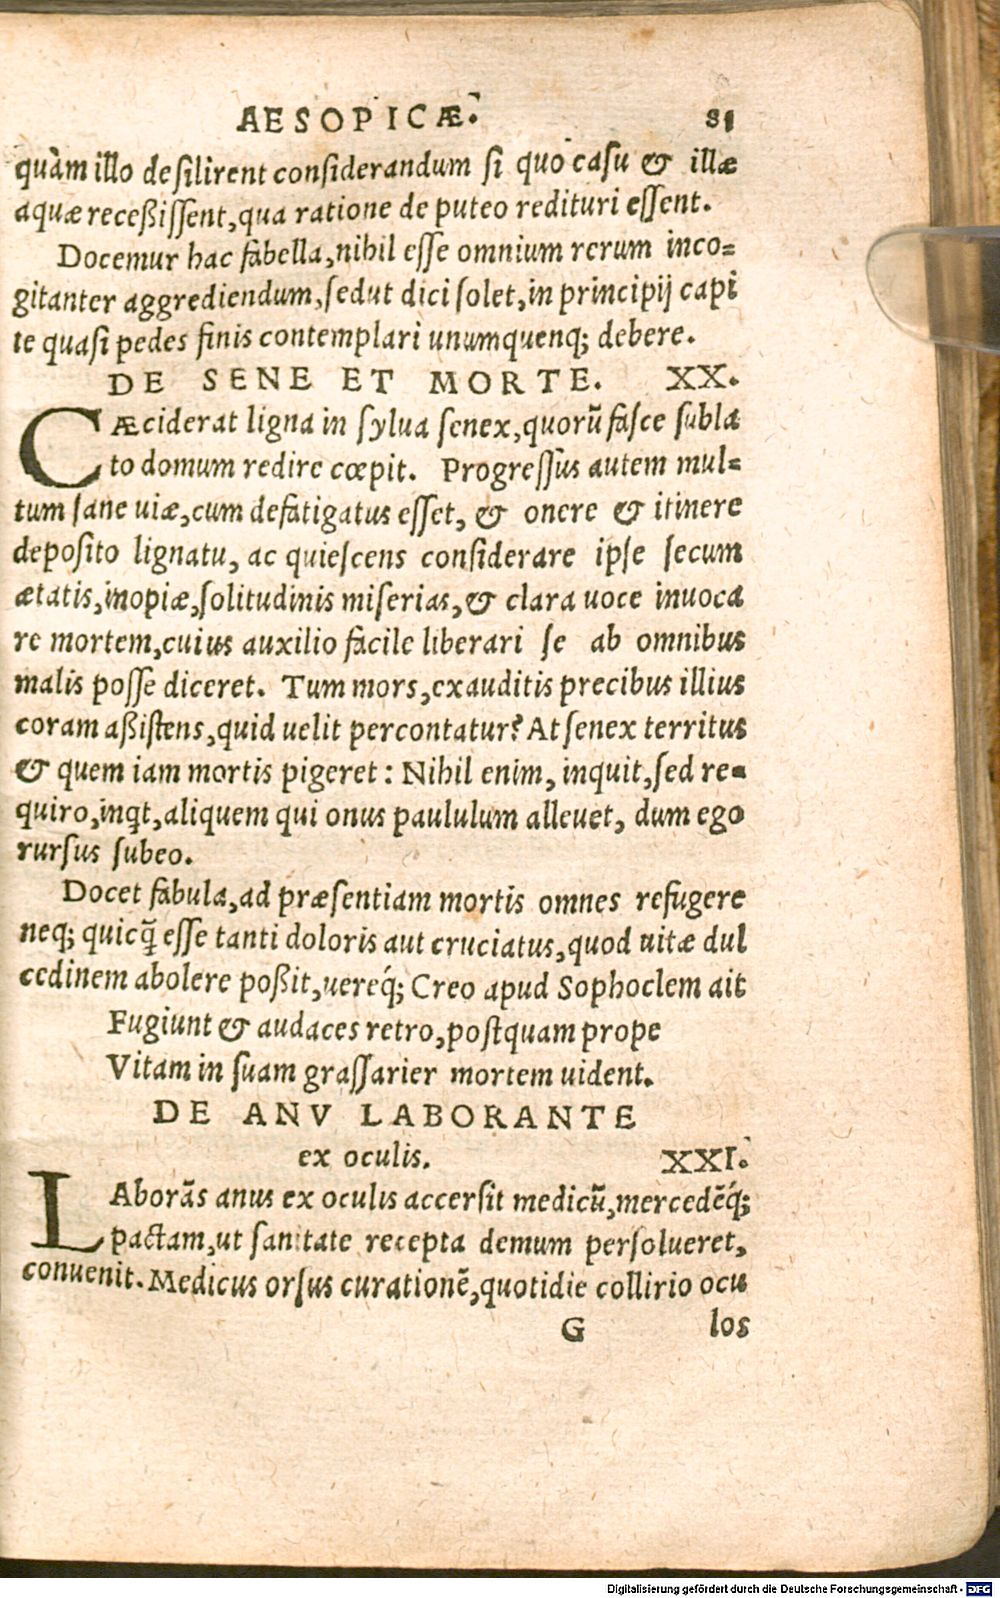 AESOPICÆ. 81
quàm illo desilirent considerandum si quo casu & illæ
aquæ receßissent, qua ratione de puteo redituri essent.
Docemur hac fabella, nihil esse omnium rerum inco=
gitanter aggrediendum, sed ut dici solet, in principij capi
te quasi pedes finis contemplari unumquenq; debere.
DE SENE ET MORTE. XX.
CÆciderat ligna in sylua senex, quorũ fasce subla
to domum redire cœpit. Progressus autem mul=
tum sane uiæ, cum defatigatus esset, & onere & itinere
deposito lignatu, ac quiescens considerare ipse secum
ætatis, inopiæ, solitudinis miserias, & clara uoce inuoca
re mortem, cuius auxilio facile liberari se ab omnibus
malis posse diceret. Tum mors, exauditis precibus illius
coram aßistens, quid uelit percontatur? At senex territus
& quem iam mortis pigeret: Nihil enim, inquit, sed re=
quiro, inq̃t, aliquem qui onus paululum alleuet, dum ego
rursus subeo.
Docet fabula, ad præsentiam mortis omnes refugere
neq; quicq̃ esse tanti doloris aut cruciatus, quod uitæ dul
cedinem abolere poßit, uereq́; Creo apud Sophoclem ait
Fugiunt & audaces retro, postquam prope
Vitam in suam grassarier mortem uident.
DE ANV LABORANTE
ex oculis. XXI.
LAborãs anus ex oculis accersit medicũ, mercedẽq́;
pactam, ut sanitate recepta demum persolueret,
conuenit. Medicus orsus curationẽ, quotidie collirio ocu
G los
Digitalisierung gefördert durch die Deutsche Forschungsgemeinschaft - DFG